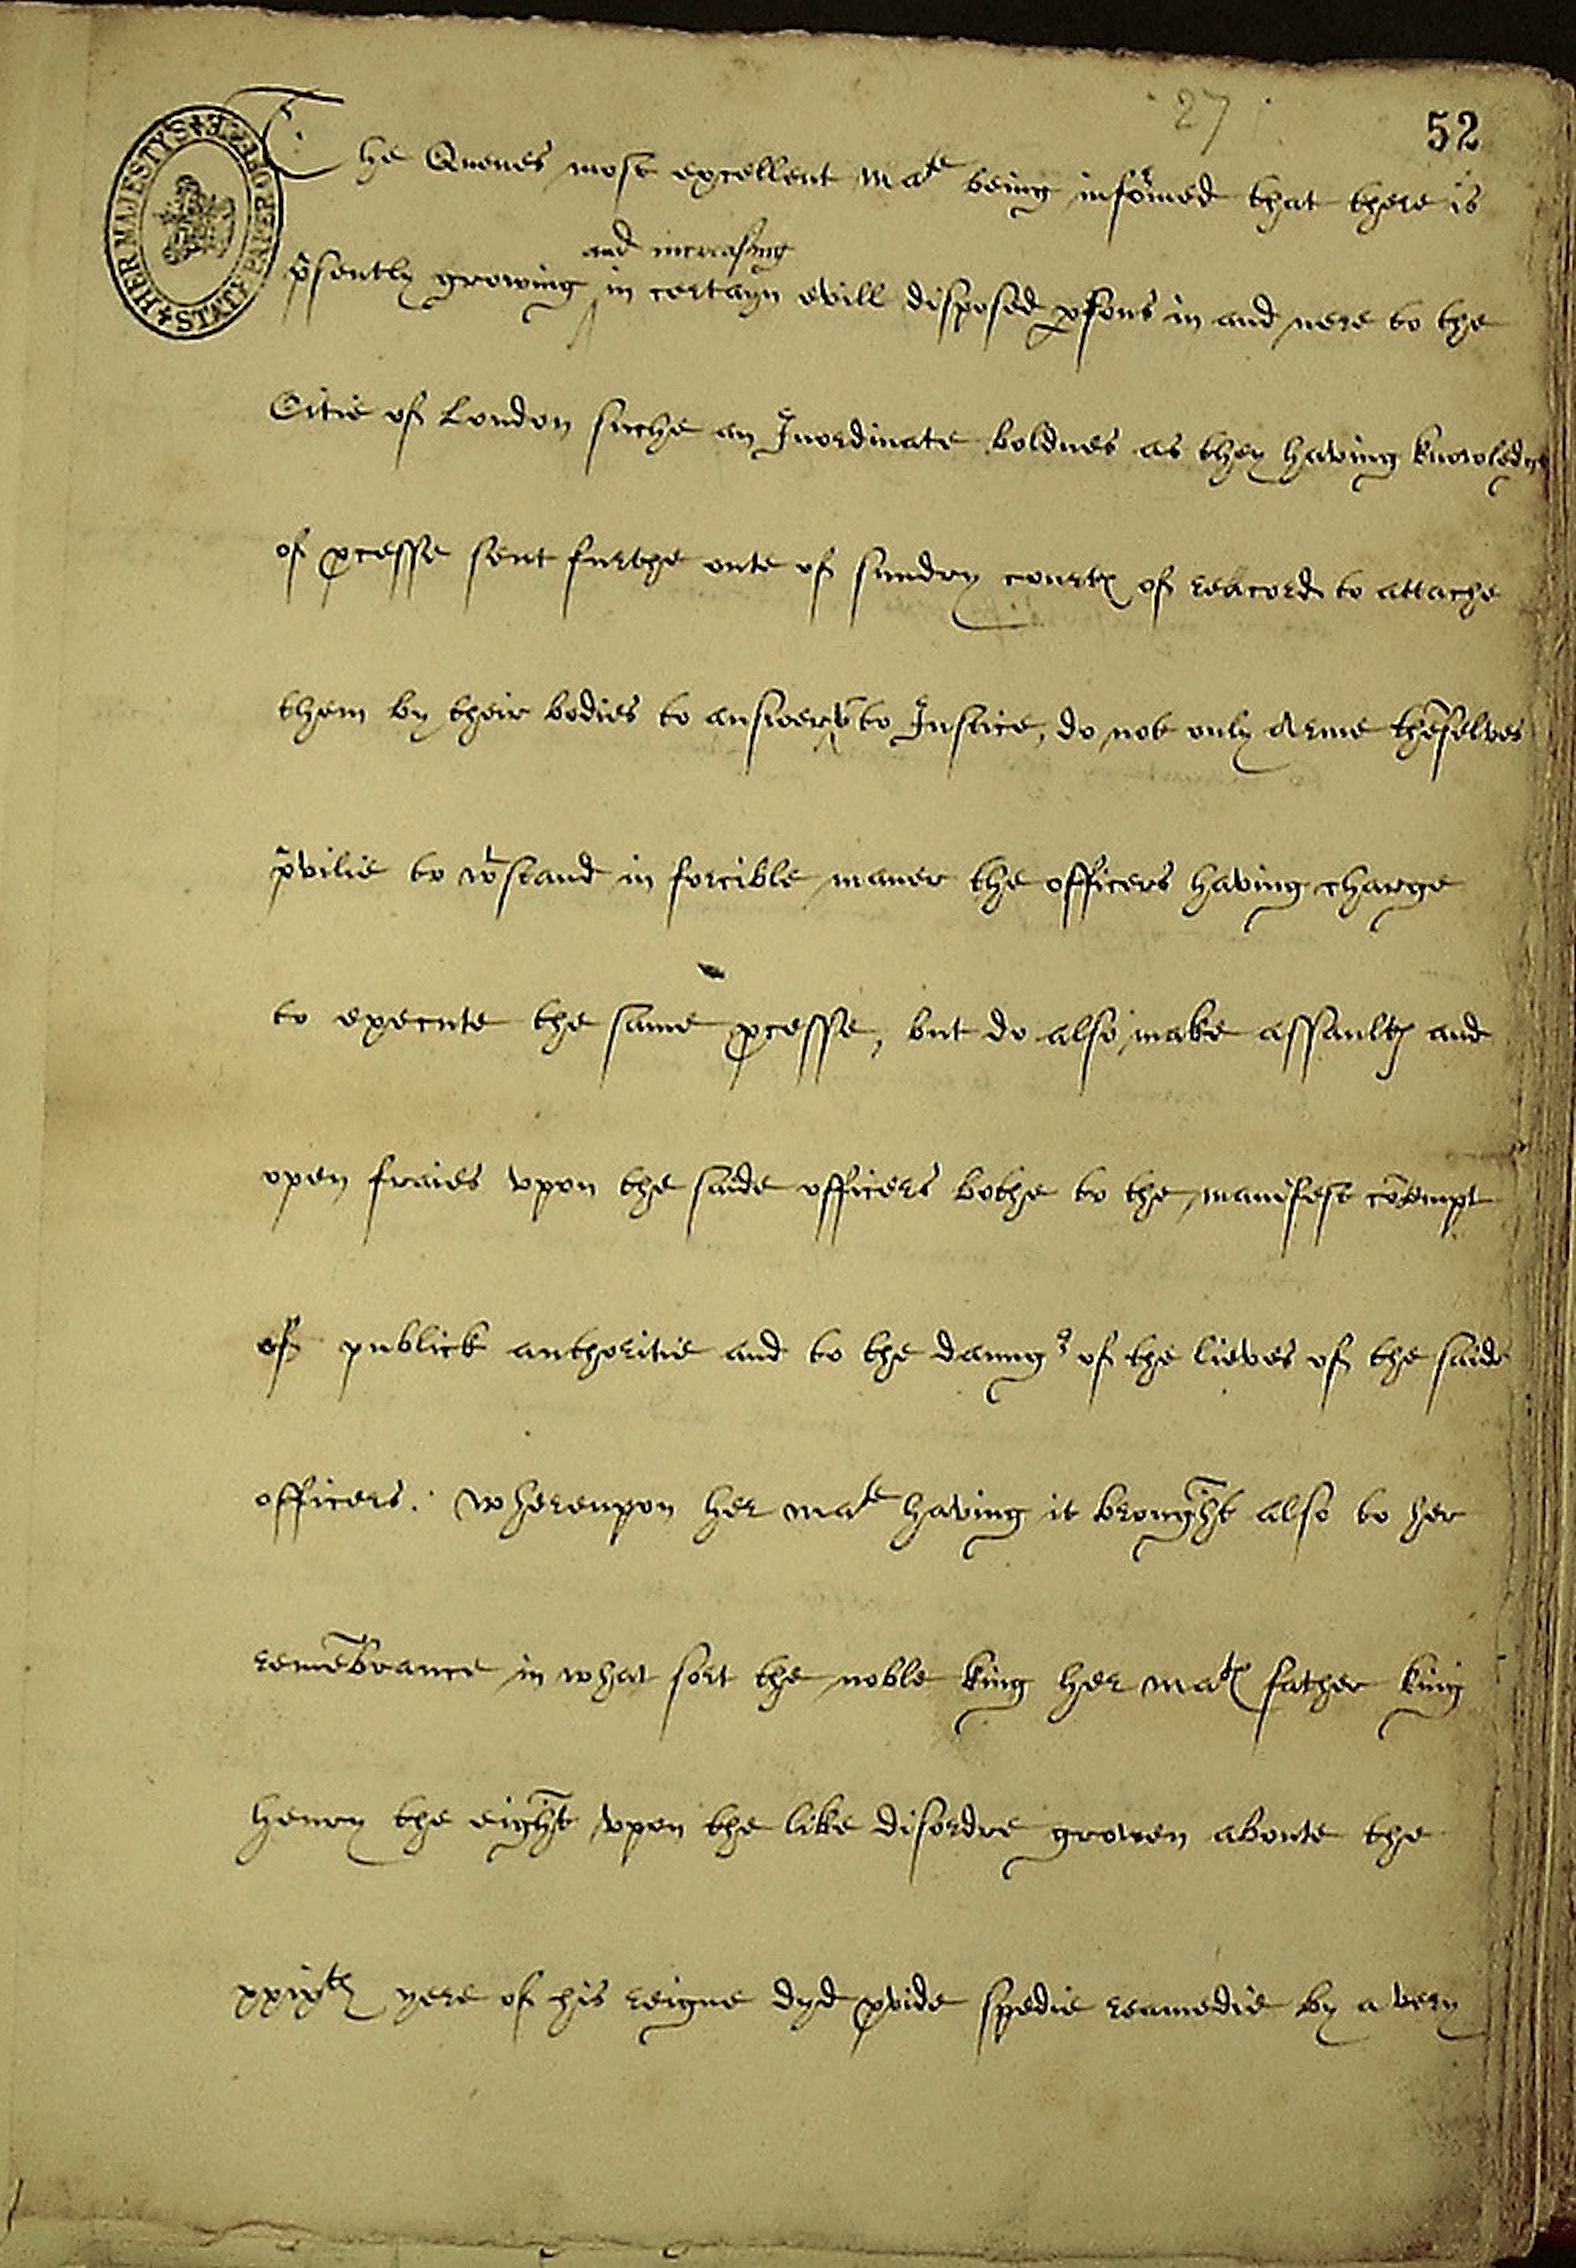 27
52
HER MAJESTY'S STATE PAPER OFFICE
The Quenes most excellent Matie being informed that there is
and increasing
p̄sently growing ^ in certayn evill disposed ꝑsons in and nere to the
Citie of London suche an Inordinate boldnes as they having knowledge
of ꝓcesse sent furthe oute of sundry courtꝭ of reacord to attache
them by their bodies to answer v̄to Justice, do not only Arme thēselves
p̄vilie to wtstand in forcible maner the officers having charge
to execute the same ꝓcesse, but do also make assaultꝭ and
open fraies vpon the saide officers bothe to the manifest cōtempt
of publick authoritie and to the daungr of the lieves of the saide
officers. Wherevpon her Matie having it brought also to her
remēbrance in what sort the noble king her Matꝭ father king
Henry the eight vpon the like disordre growen aboute the
xxixth yere of his reigne dyd ꝓvide spedie reamedie by a very